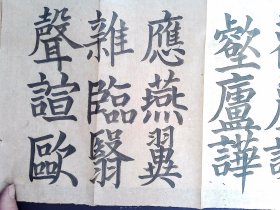 廬譁
應燕翼
雜臨翳
聲諠歐